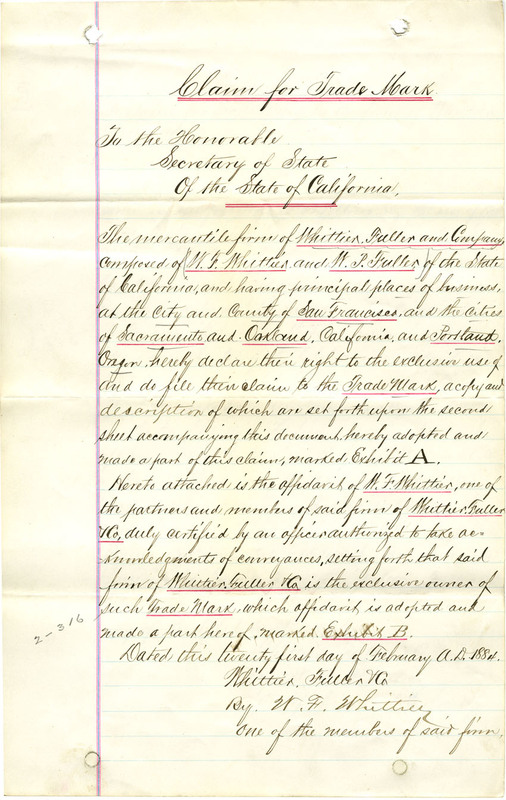 Claim for Trade Mark.
To the Honorable
Secretary of State
Of the State of California,
The mercantile firm of Whittier, Fuller and Company,
composed of (W. F. Whittier and W. P. Fuller) of the State
of California, and having principal places of business,
at the City and County of San Francisco, and the cities
of Sacramento and Oakland, California, and Portland,
Oregon, hereby declare their right to the exclusive use of
and do file their claim to the Trade Mark, a copy and
description of which are set forth upon the second
sheet accompanying this document, hereby adopted and
made a part of this claim, marked Exhibit A.
Hereto attached is the affidavit of W. F. Whittier, one of
the partners and members of said firm of Whittier, Fuller
& Co, duly certified by an officer authorized to take ac-
-knowledgments of conveyances, setting forth that said
firm of Whittier, Fuller & Co. is the exclusive owner of
such Trade Mark, which affidavit is adopted and
made a part hereof, marked Exhibit B.
2-316
Dated this twenty first day of February A.D. 1884.
Whittier, Fuller & Co
By. W. F. Whittier
One of the members of said firm.